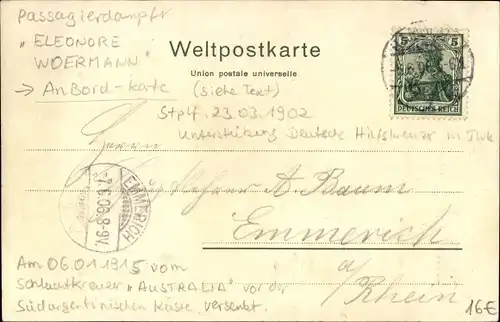 Passagierdampfr
"ELEONORE
WOERMANN"
→ An Bord-Karte (siehe Text)
Weltpostkarte
Union postale universelle
5 5
DEUTSCHES REICH
Stpl. 23.03.1902
Unterstützung Deutsche Hilfskreuzer
Herrn
A. Baum
EMMERICH
Emmerich
a/
Rhein
Am 06.01.1915 vom
Schlachtkreuzer "AUSTRALIA" vor der
Südargentinischen Küste versenkt.
16€